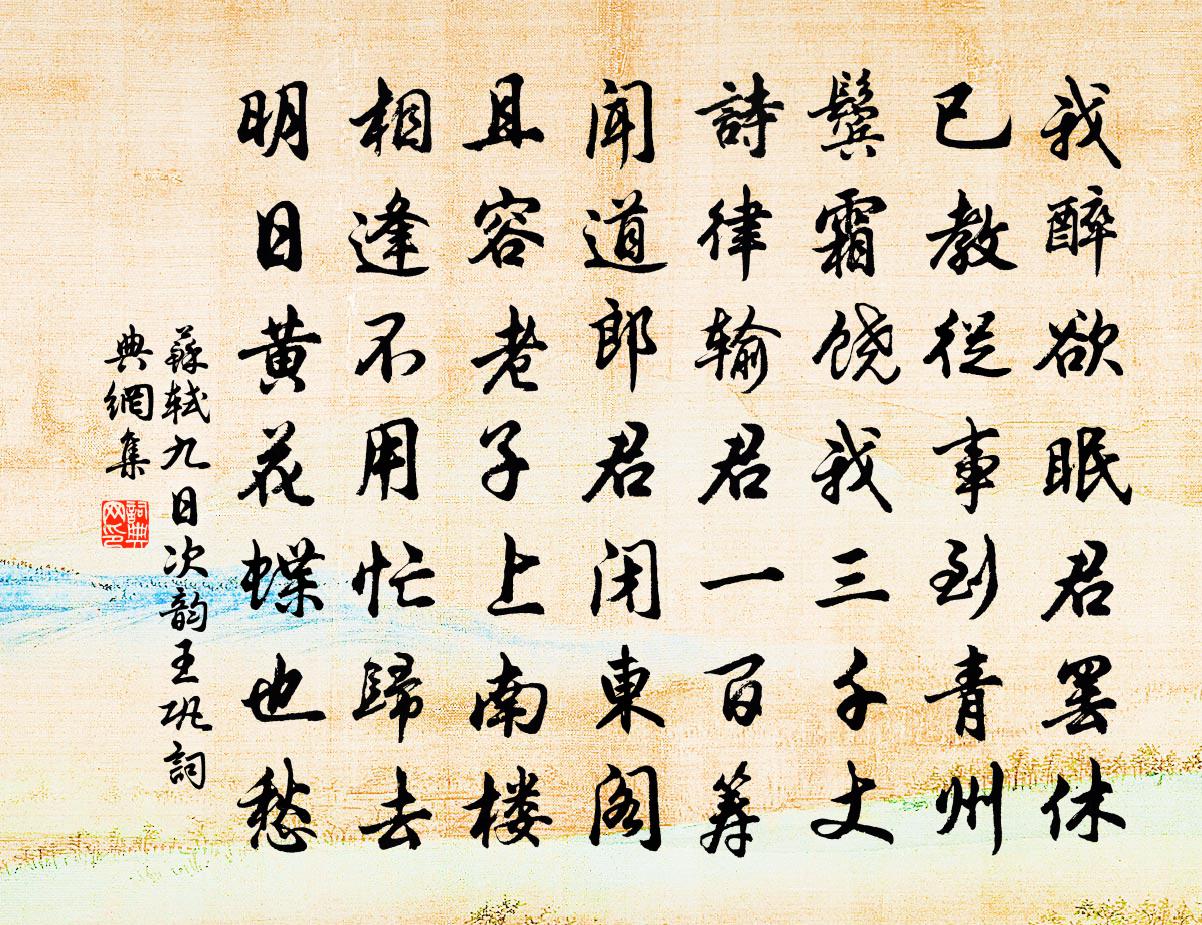 我醉欲眠君罢休
已教從事到青州
鬓霜饶我三千丈
詩律输君一百筹
闻道郎君闭東阁
且容老子上南楼
相逢不用忙歸去
明日黄花蝶也愁
蘇轼九日次韵王巩詞
典網集
詞典
网印